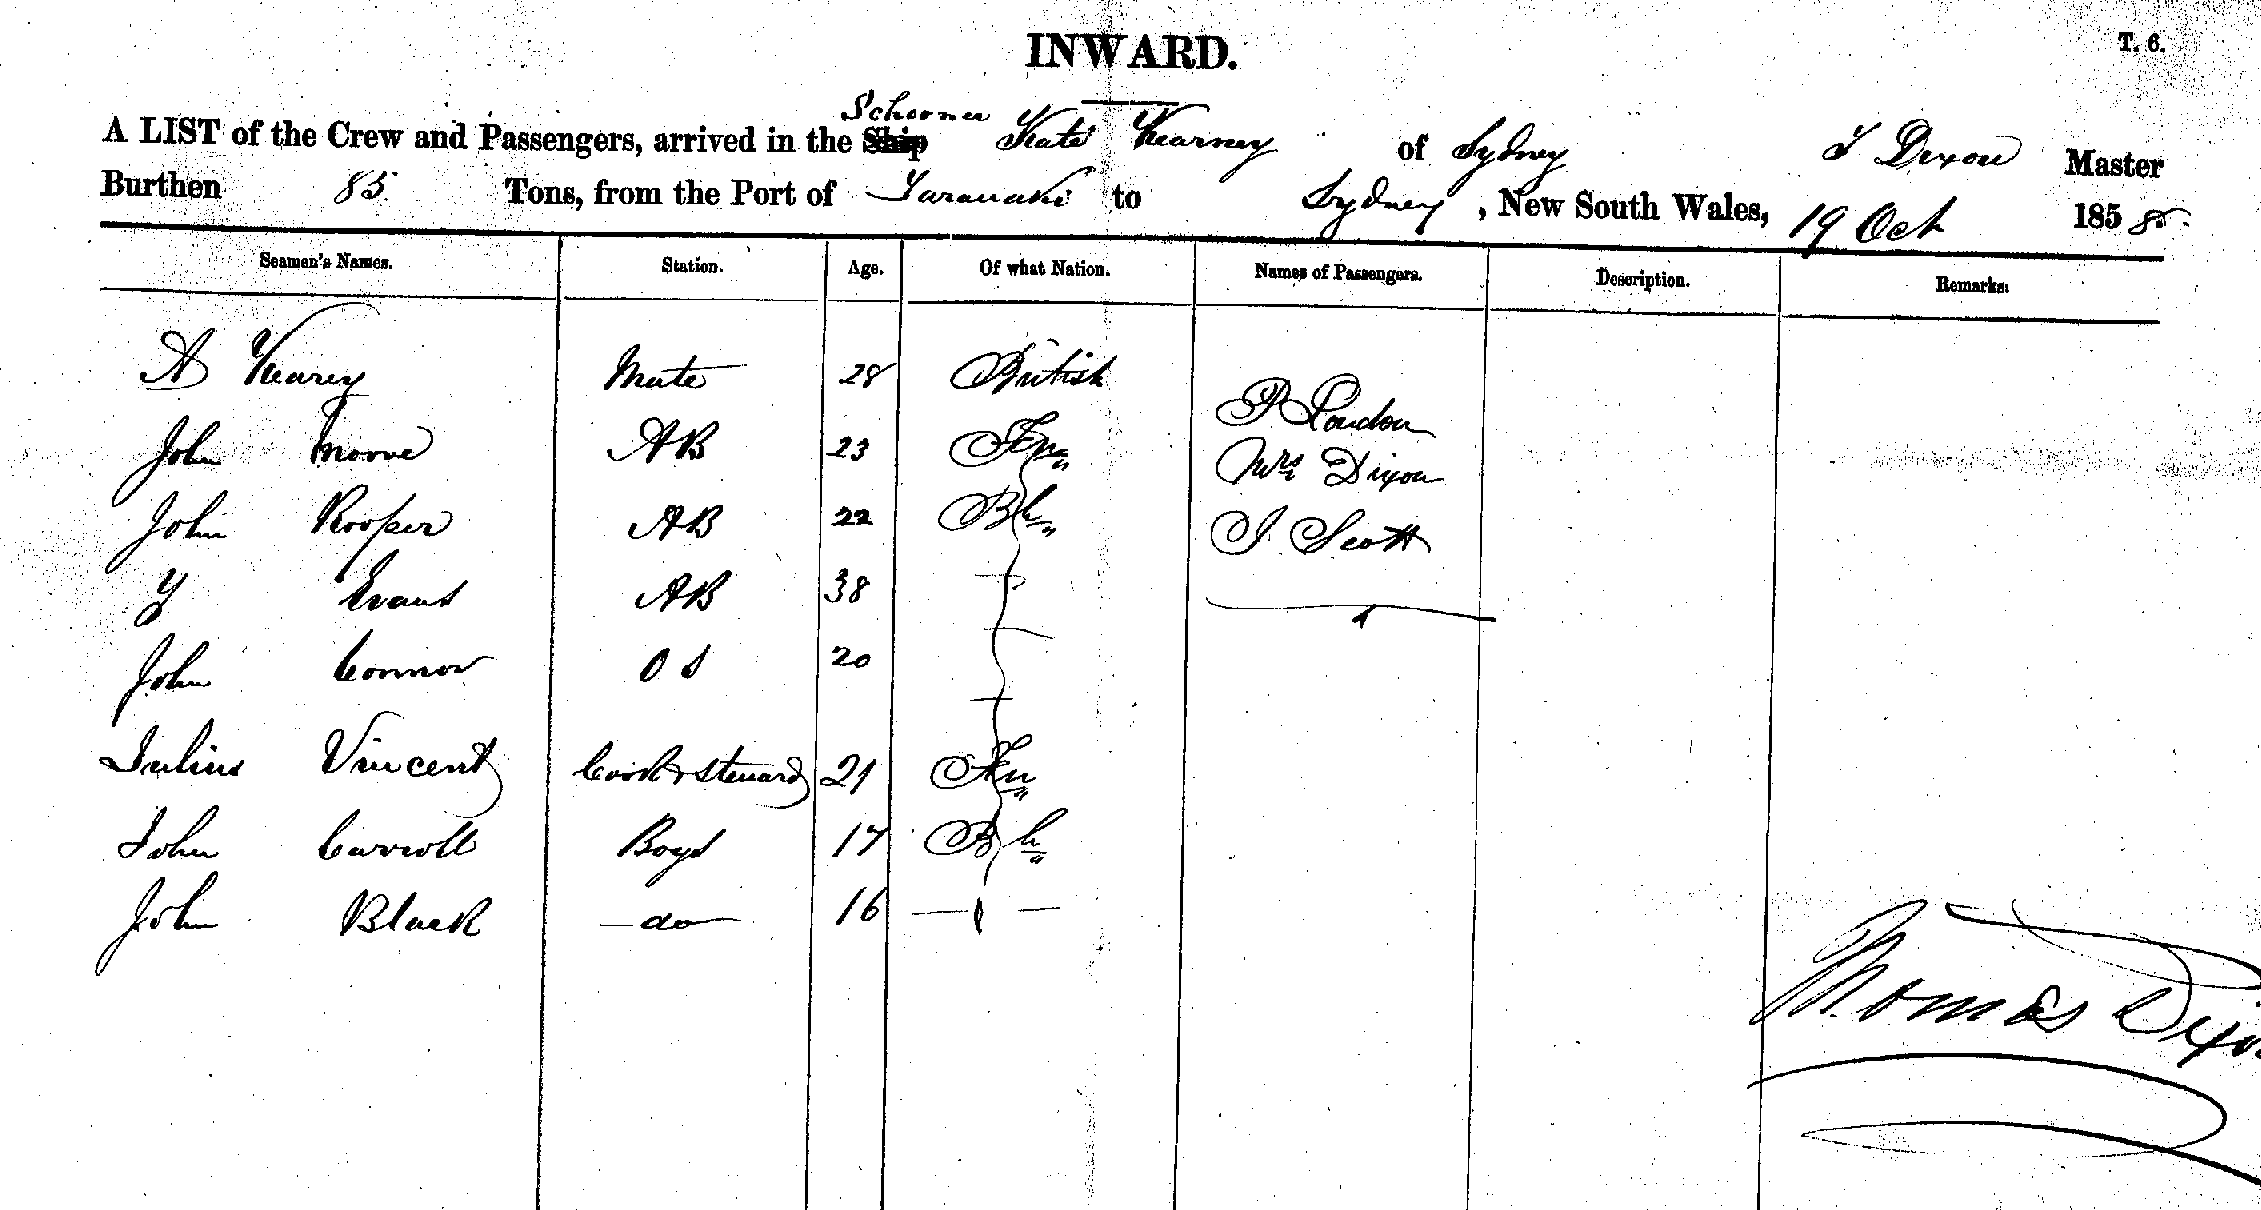 INWARD.
T. 6.
Schooner
A LIST of the Crew and Passengers, arrived in the Ship Kate Kearney of Sydney T Dixon Master
Burthen 85 Tons, from the Port of Taranaki to Sydney, New South Wales, 19 Oct 1858.
Seamen's Names. Station. Age. Of what Nation. Names of Passengers. Description. Remarks.
A Mate 28 British
P Loudon
John Moore AB 23
Mrs Dixon
John Rooper AB 22 Bh
J. Scott
Evans AB 38
John Connor OS 20
Julius Vincent Cook & Steward 21
John Carroll Boys 17 Bh
John Black — do — 16 — " —
Thomas Dixon